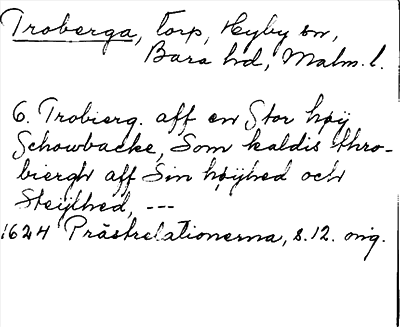 Troberga, torp, Hyby sn,
Bara hd, Malm. l.
6. Trobierg. aff en Stor høy
Schowbacke, Som kaldis thro-
biergh aff Sin høyhed och
Steylhed, ---
1624 Prästrelationerna, s. 12. orig.